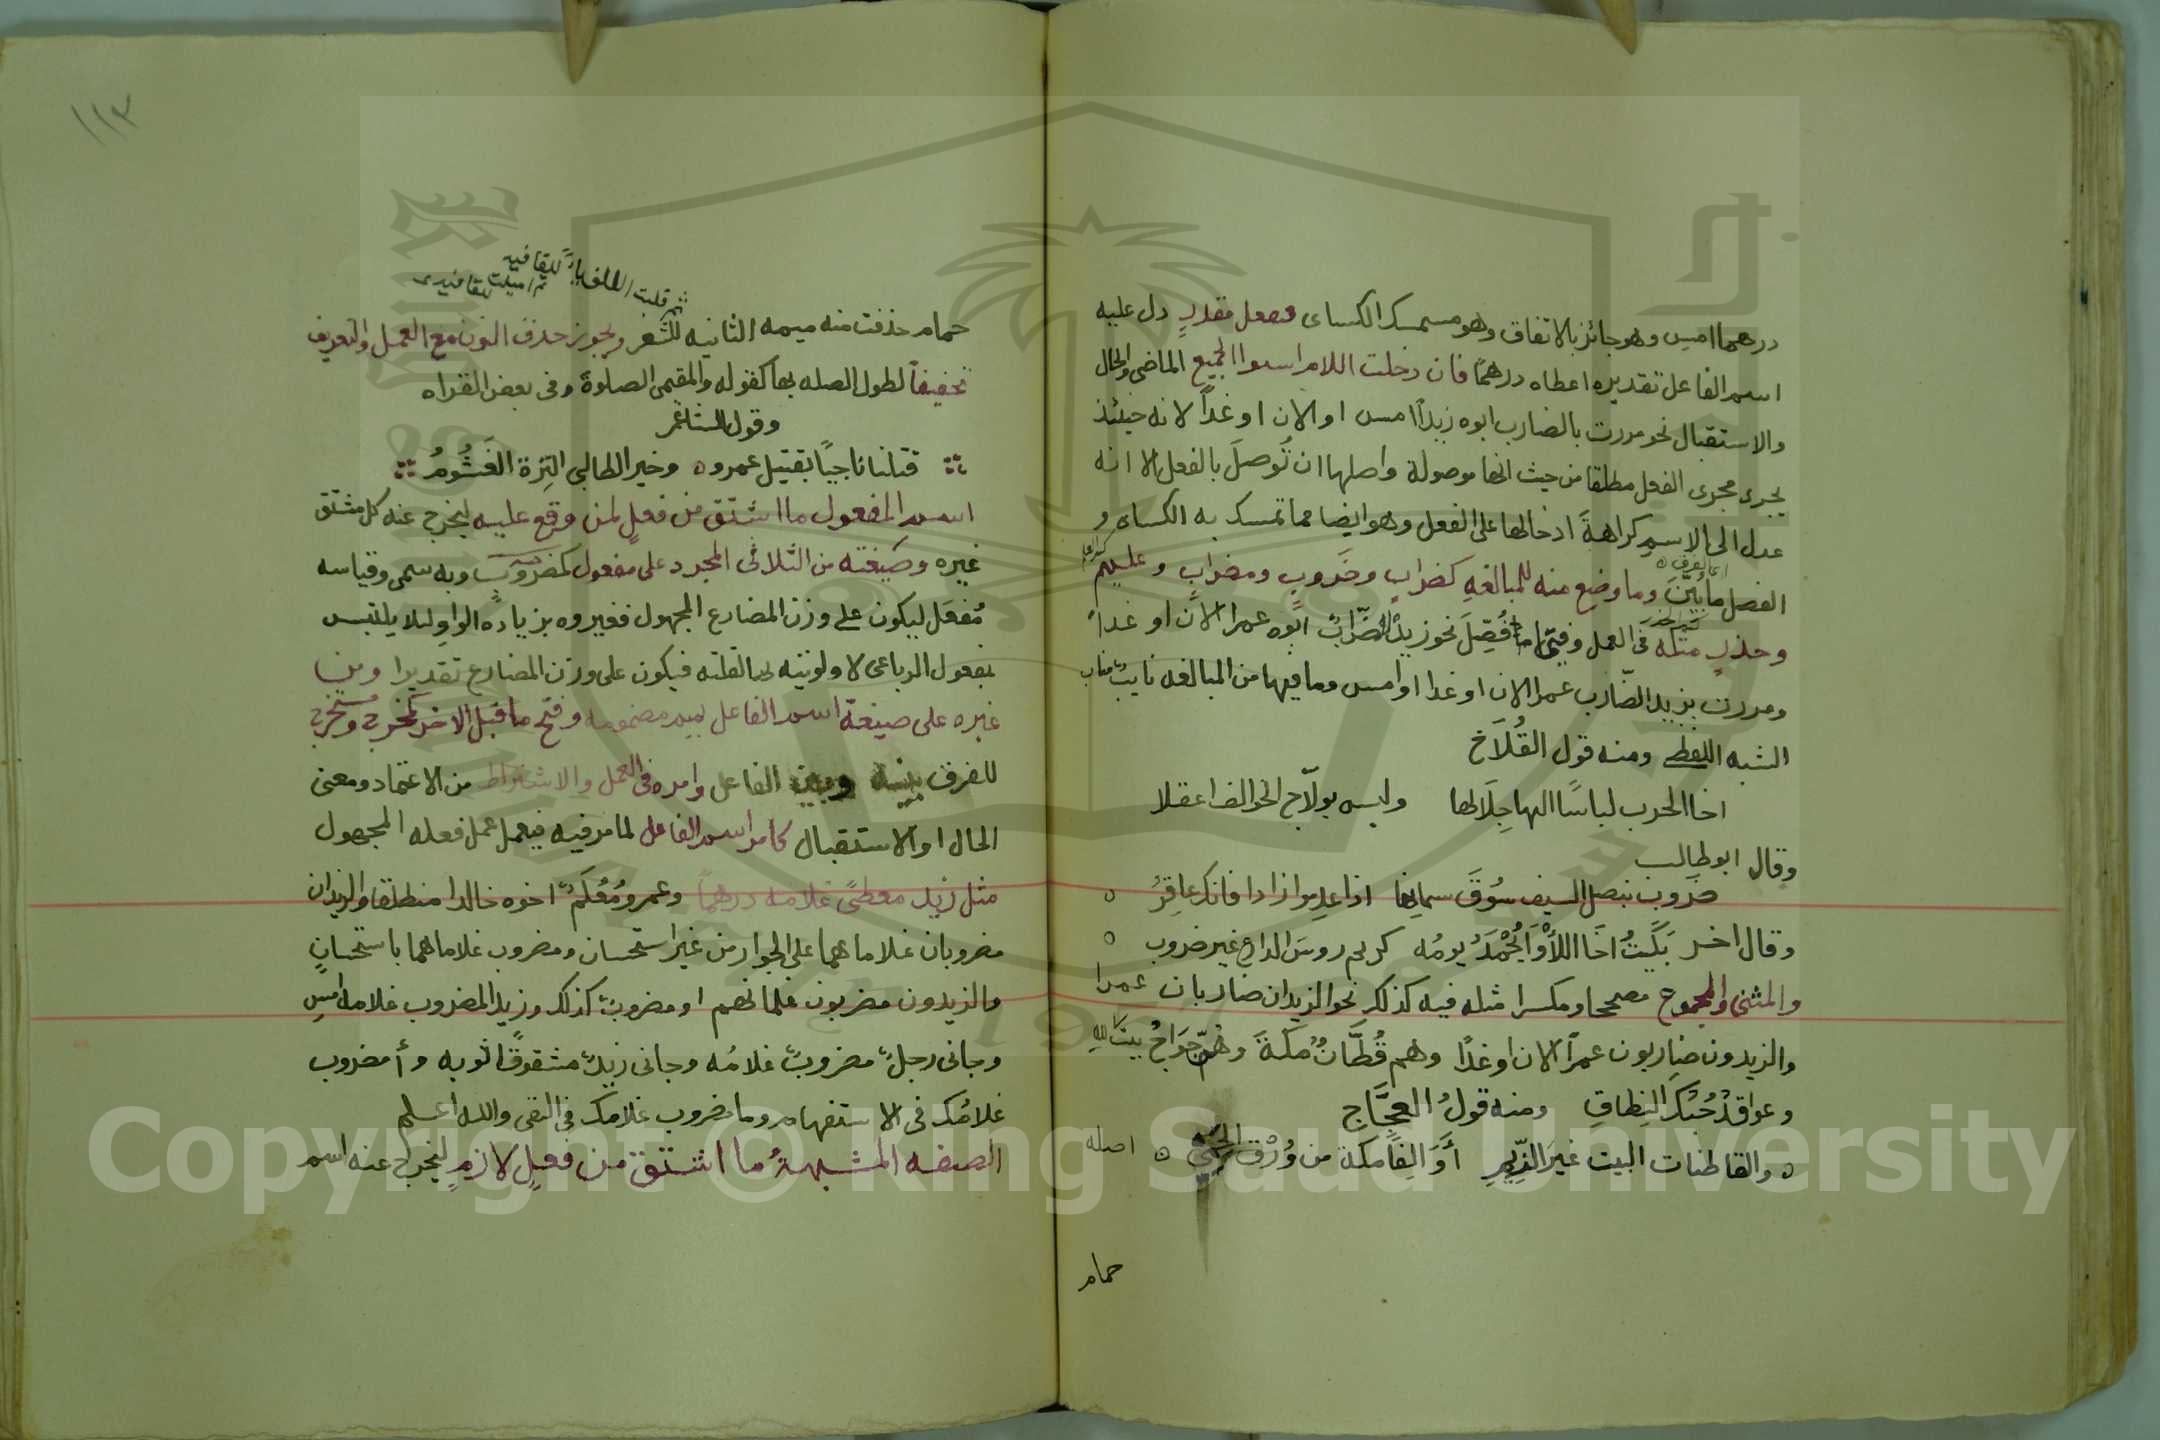 درهما امس وهو جائز بالاتفاق وهو مستمسك الكساى فبفعل مقدرٍ دل عليه
اسم الفاعل تقديره اعطاه درهمًا فان دخلت اللام استوا الجميع الماضى والحال
والاستقبال نحو مررت بالضارب ابوه زيداً امس او الان او غداً لانه حينئذ
يجرى مجرى الفعل مطلقا من حيث انها موصولة واصلها ان تُوصلَ بالفعل الا انه
عدل الى الاسم كراهةَ ادخالها على الفعل وهو ايضا مما تمسك به الكساى و
الفصل ما بُيّنَ وما وضع منه للمبالغهِ كضرابٍ وضَروبٍ ومضرابٍ وعليمٍ
وحذرٍ مثله فى العمل وفيما فُصِّلَ نحو زيدٌ الضّرابُ ابوه عمرا الان او غداً
ومررت بزيد الضّارب عمرا الان او غدا او امس وما فيها من المبالغه نايبٌ مناب
الشبه اللفظى ومنه قول القُلَاخ
اخا الحرب لباسًا اليها جِلَالها وليس بولّاج الخوالف اعقلا
وقال ابو طالب
ضَروب بنصل السيف سُوقَ سمانِها اذا عدِموا زادا فانك عاقِرُ
وقال اخر بَكَيْتُ اخَا اللأْوَا يُحْمَدُ يومُه كريم روسَ الدارعِ غير ضروب
والمثنى والمجموع مصححا ومكسرا مثله فيه كذلك نحو الزيدان ضاربان عمرا
والزيدون ضاربون عمراً الان او غدًا وهم قُطَّانٌ مكةَ وهنّ حَوَاجُّ بيتَ الله
وعواقدٌ حُبُكَ النِطاقِ ومنه قولُ العجَّاج
والقاطنات البيت غيرَ الرِّيمِ أوَالِفًا مكة من وُرْقِ الحَمِي اصله
حمام
١١٣
ثم قلبت الالف ياءً للقافيه
حمام حذفت منه ميمه الثانيه للشعر ويجوز حذف النون مع العمل والتعريف
تخفيفاً لطول الصله بها كقوله والمقيمى الصلوةَ وفى بعض القراه
وقول الشاعر
قتلنا ناجيًا بقتيل عمرو وخير الطالبى التِرة الغَشُومُ
اسم المفعول ما اشتق من فعلٍ لمن وقع عليه ليخرج عنه كل مشتق
غيره وصيغته من الثلاثى المجرد على مفعول كمضروبٍ وبه سمى وقياسه
مُفعَل ليكون على وزن المضارع المجهول فغيروه بزيادة الواو لئلا يلتبس
بمفعول الرباعى لاولويته بها لقلته فيكون على وزن المضارع تقديرا ومن
غيره على صيغة اسم الفاعل بميم مضمومه وفتح ما قبل الاخر كمخرج ومستخرج
للفرق بينه وبين الفاعل وامره فى العمل والاشتراط من الاعتماد ومعنى
الحال او الاستقبال كامر اسم الفاعل لما مر فيه فيعمل عمل فعله المجهول
مثل زيد معطىً غلامه درهماً وعمرو مُعْلَمٌ اخوه خالدا منطلقا والزيدان
مضروبان غلاماهما على الجواز من غير استحسان ومضروب غلاماهما باستحسانٍ
والزيدون مضربون غلمانهم او مضروبٌ كذلك وزيد المضروب غلامه امسِ
وجانى رجلٌ مضروبٌ غلامُه وجانى زيدٌ مشقوقًا ثوبه وأ مضروب
غلامُك فى الاستفهام وما مضروب غلامك فى النفى والله اعلم
الصفه المشبهةُ ما اشتق من فعلٍ لازمٍ ليخرج عنه اسم
Copyright © King Saud University